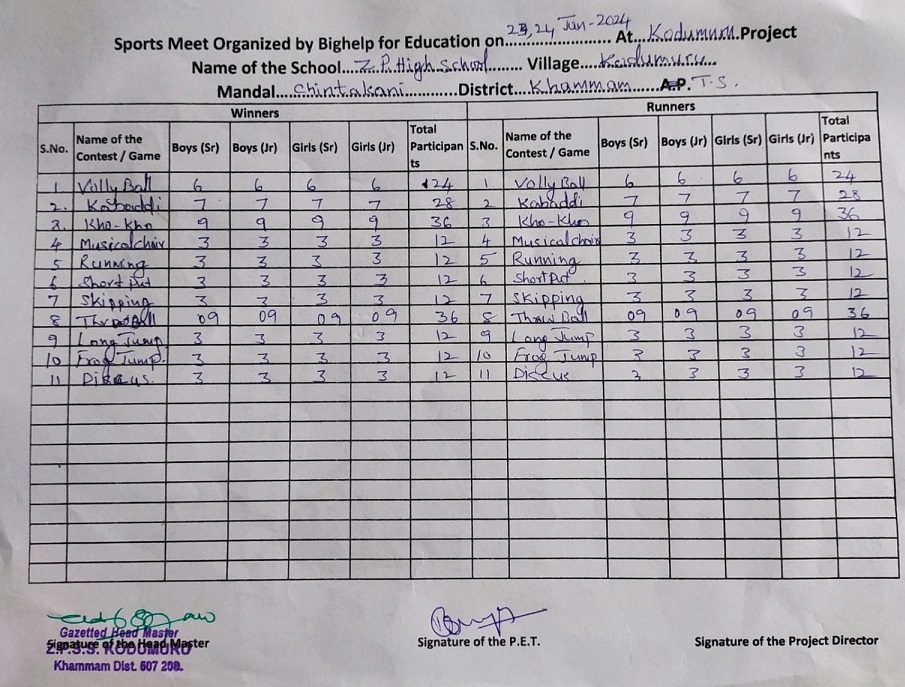 Sports Meet Organized by Bighelp for Education on 23,24 Jan-2024 At Kodumuru Project
Name of the School Z.P. High School Village Kodumuru
Mandal Chintakani District Khammam A.P. T.S.
Winners Runners
S.No. Name of the Contest / Game Boys (Sr) Boys (Jr) Girls (Sr) Girls (Jr) Total Participants S.No. Name of the Contest / Game Boys (Sr) Boys (Jr) Girls (Sr) Girls (Jr) Total Participants
1 Volly Ball 6 6 6 6 24 1 Volly Ball 6 6 6 6 24
2. Kabaddi 7 7 7 7 28 2 Kabaddi 7 7 7 7 28
3. Kho-Kho 9 9 9 9 36 3 Kho-Kho 9 9 9 9 36
4 Musical chair 3 3 3 3 12 4 Musical chair 3 3 3 3 12
5 Running 3 3 3 3 12 5 Running 3 3 3 3 12
6 Short Put 3 3 3 3 12 6 Short Put 3 3 3 3 12
7 Skipping 3 3 3 3 12 7 Skipping 3 3 3 3 12
8 Throw Ball 09 09 09 09 36 8 Throw Ball 09 09 09 09 36
9 Long Jump 3 3 3 3 12 9 Long Jump 3 3 3 3 12
10 Frog Jump. 3 3 3 3 12 10 Frog Jump 3 3 3 3 12
11 Discus. 3 3 3 3 12 11 Discus 3 3 3 3 12
Gazetted Head Master
Signature of the Head Master Signature of the P.E.T. Signature of the Project Director
Z.P.S.S. KODUMURU
Khammam Dist. 507 208.